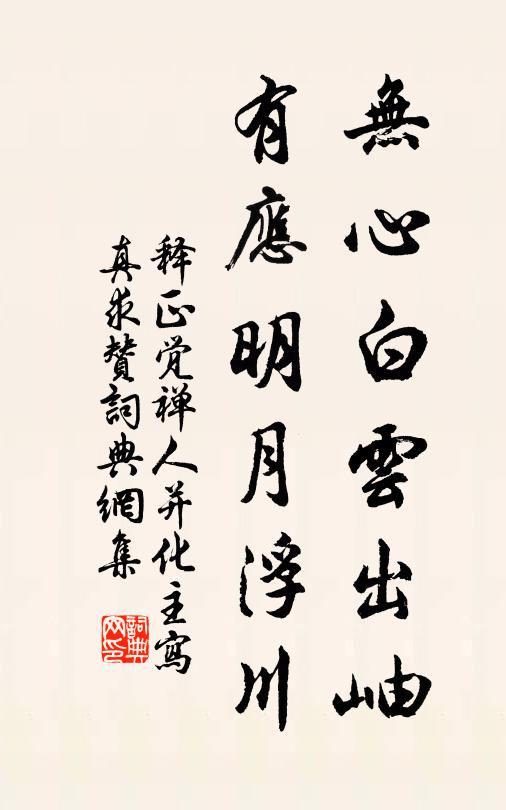 無心白雲出岫
有應明月浮川
释正觉禅人并化主寫
真求賛詞典網集
詞典
网印